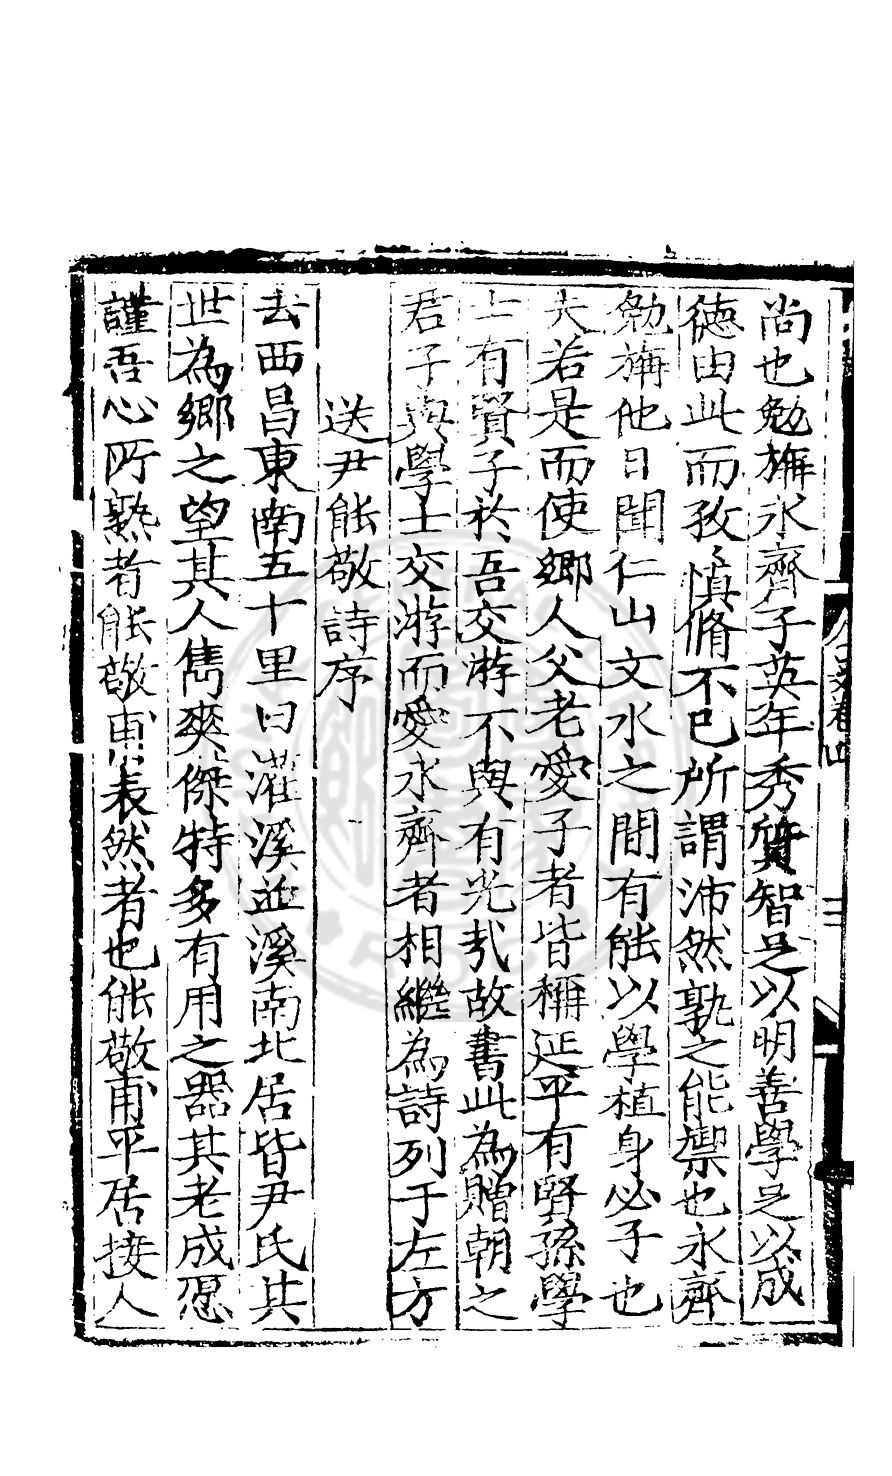 尚也勉旃永齊子英年秀質智足以明善學足以成
徳由此而孜〻慎脩不已所謂沛然孰之能禦也永齊
勉旃他日聞仁山文水之間有能以學植身必子也
夫若是而使鄉人父老愛子者皆稱延平有賢孫學
士有賢子於吾交游不與有光㢤故書此為贈朝之
君子與學士交游而愛永齊者相繼為詩列于左方
送尹能敬詩序
去西昌東南五十里曰灌溪並溪南北居皆尹氏其
世為鄉之望其人雋爽傑特多有用之器其老成愿
謹吾心所熟者能敬甫表然者也能敬甫平居接人
卷四
三